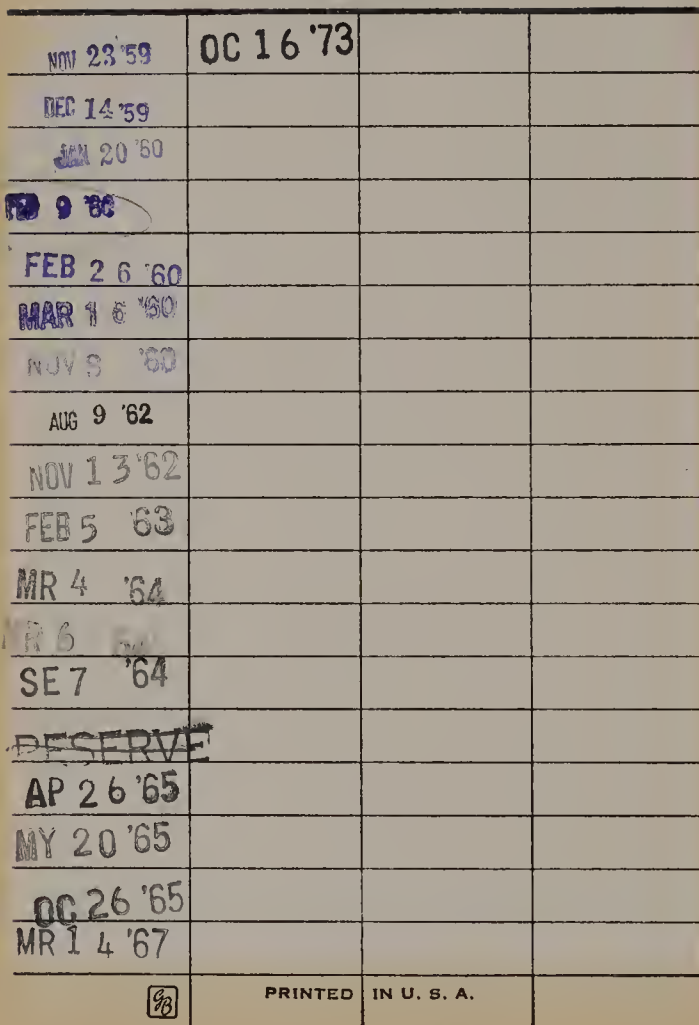 NOV 23 '59
DEC 14 '59
JAN 20 '60
FEB 9 '60
FEB 26 '60
MAR 16 '60
NOV 8 '60
AUG 9 '62
NOV 13 '62
FEB 5 '63
MR 4 '64
MR 6
SE 7 '64
RESERVE
AP 26 '65
MY 20 '65
OC 26 '65
MR 14 '67
OC 16 '73
GB
PRINTED IN U. S. A.